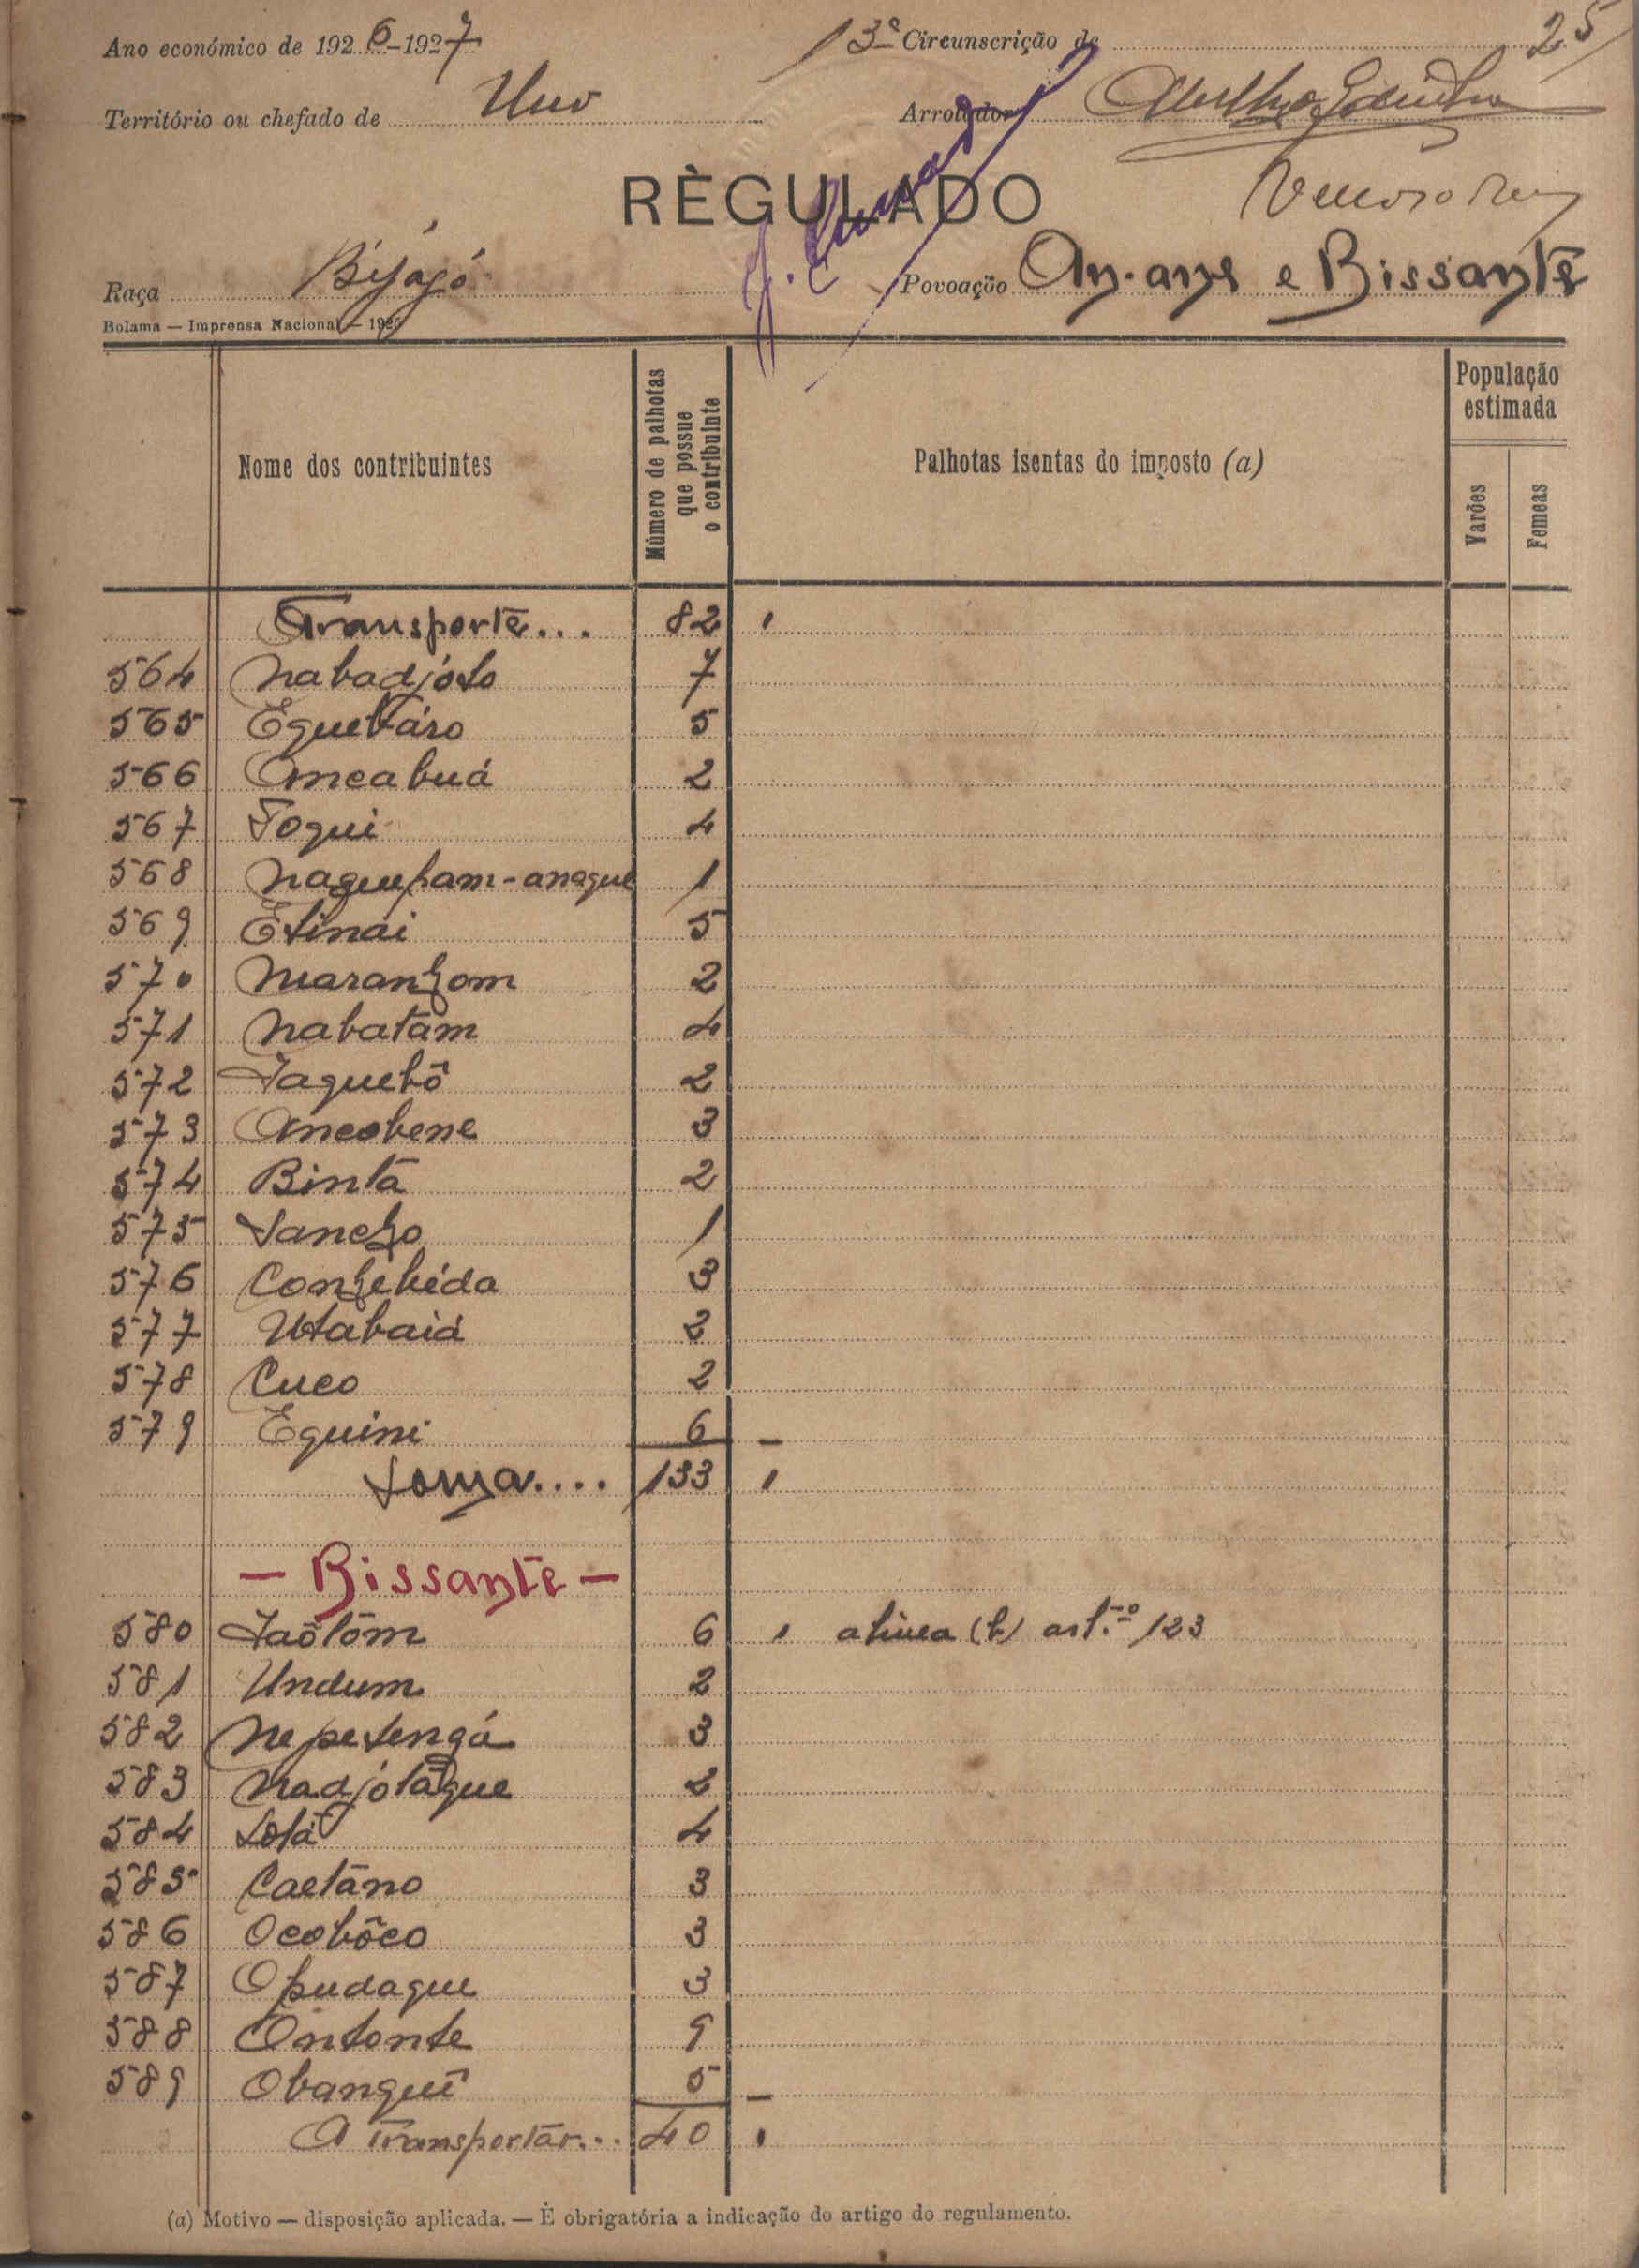 Ano económico de 1926-1927 13ª Circunscrição de 25
Território ou chefado de Uno Arrolador
RÈGULADO
Raça Bijagó Povoação An-ane e Bissante
Bolama — Imprensa Nacional — 1926
Nome dos contribuintes
Número de palhotas que possue o contribuinte
Palhotas isentas do imposto (a)
População estimada
Varões
Femeas
Transporte... 82 1
564 Nabadjóto 7
565 Eguebáro 5
566 Oncabuá 2
567 Togui 4
568 5
569 Etinai 5
570 Maranhom 2
571 Nabatam 4
572 Jaquebô 2
573 Oncobene 3
574 Bintá 2
575 Sancho 1
576 Conhebéda 3
577 Utabaiá 2
578 Cuco 2
579 Equini 6 —
Soma.... 133 1
— Bissante —
580 Jaôtôm 6 1 alinea (b) artº 123
581 Undum 2
582 Nepetengá 3
583 Nadjótague 2
584 Lotá 4
585 Caetano 3
586 Ocobôco 3
587 Opudaque 3
588 Ontonte 9
589 Obanguî 5 —
A Transportar... 40 1
(a) Motivo — disposição aplicada. — È obrigatória a indicação do artigo do regulamento.